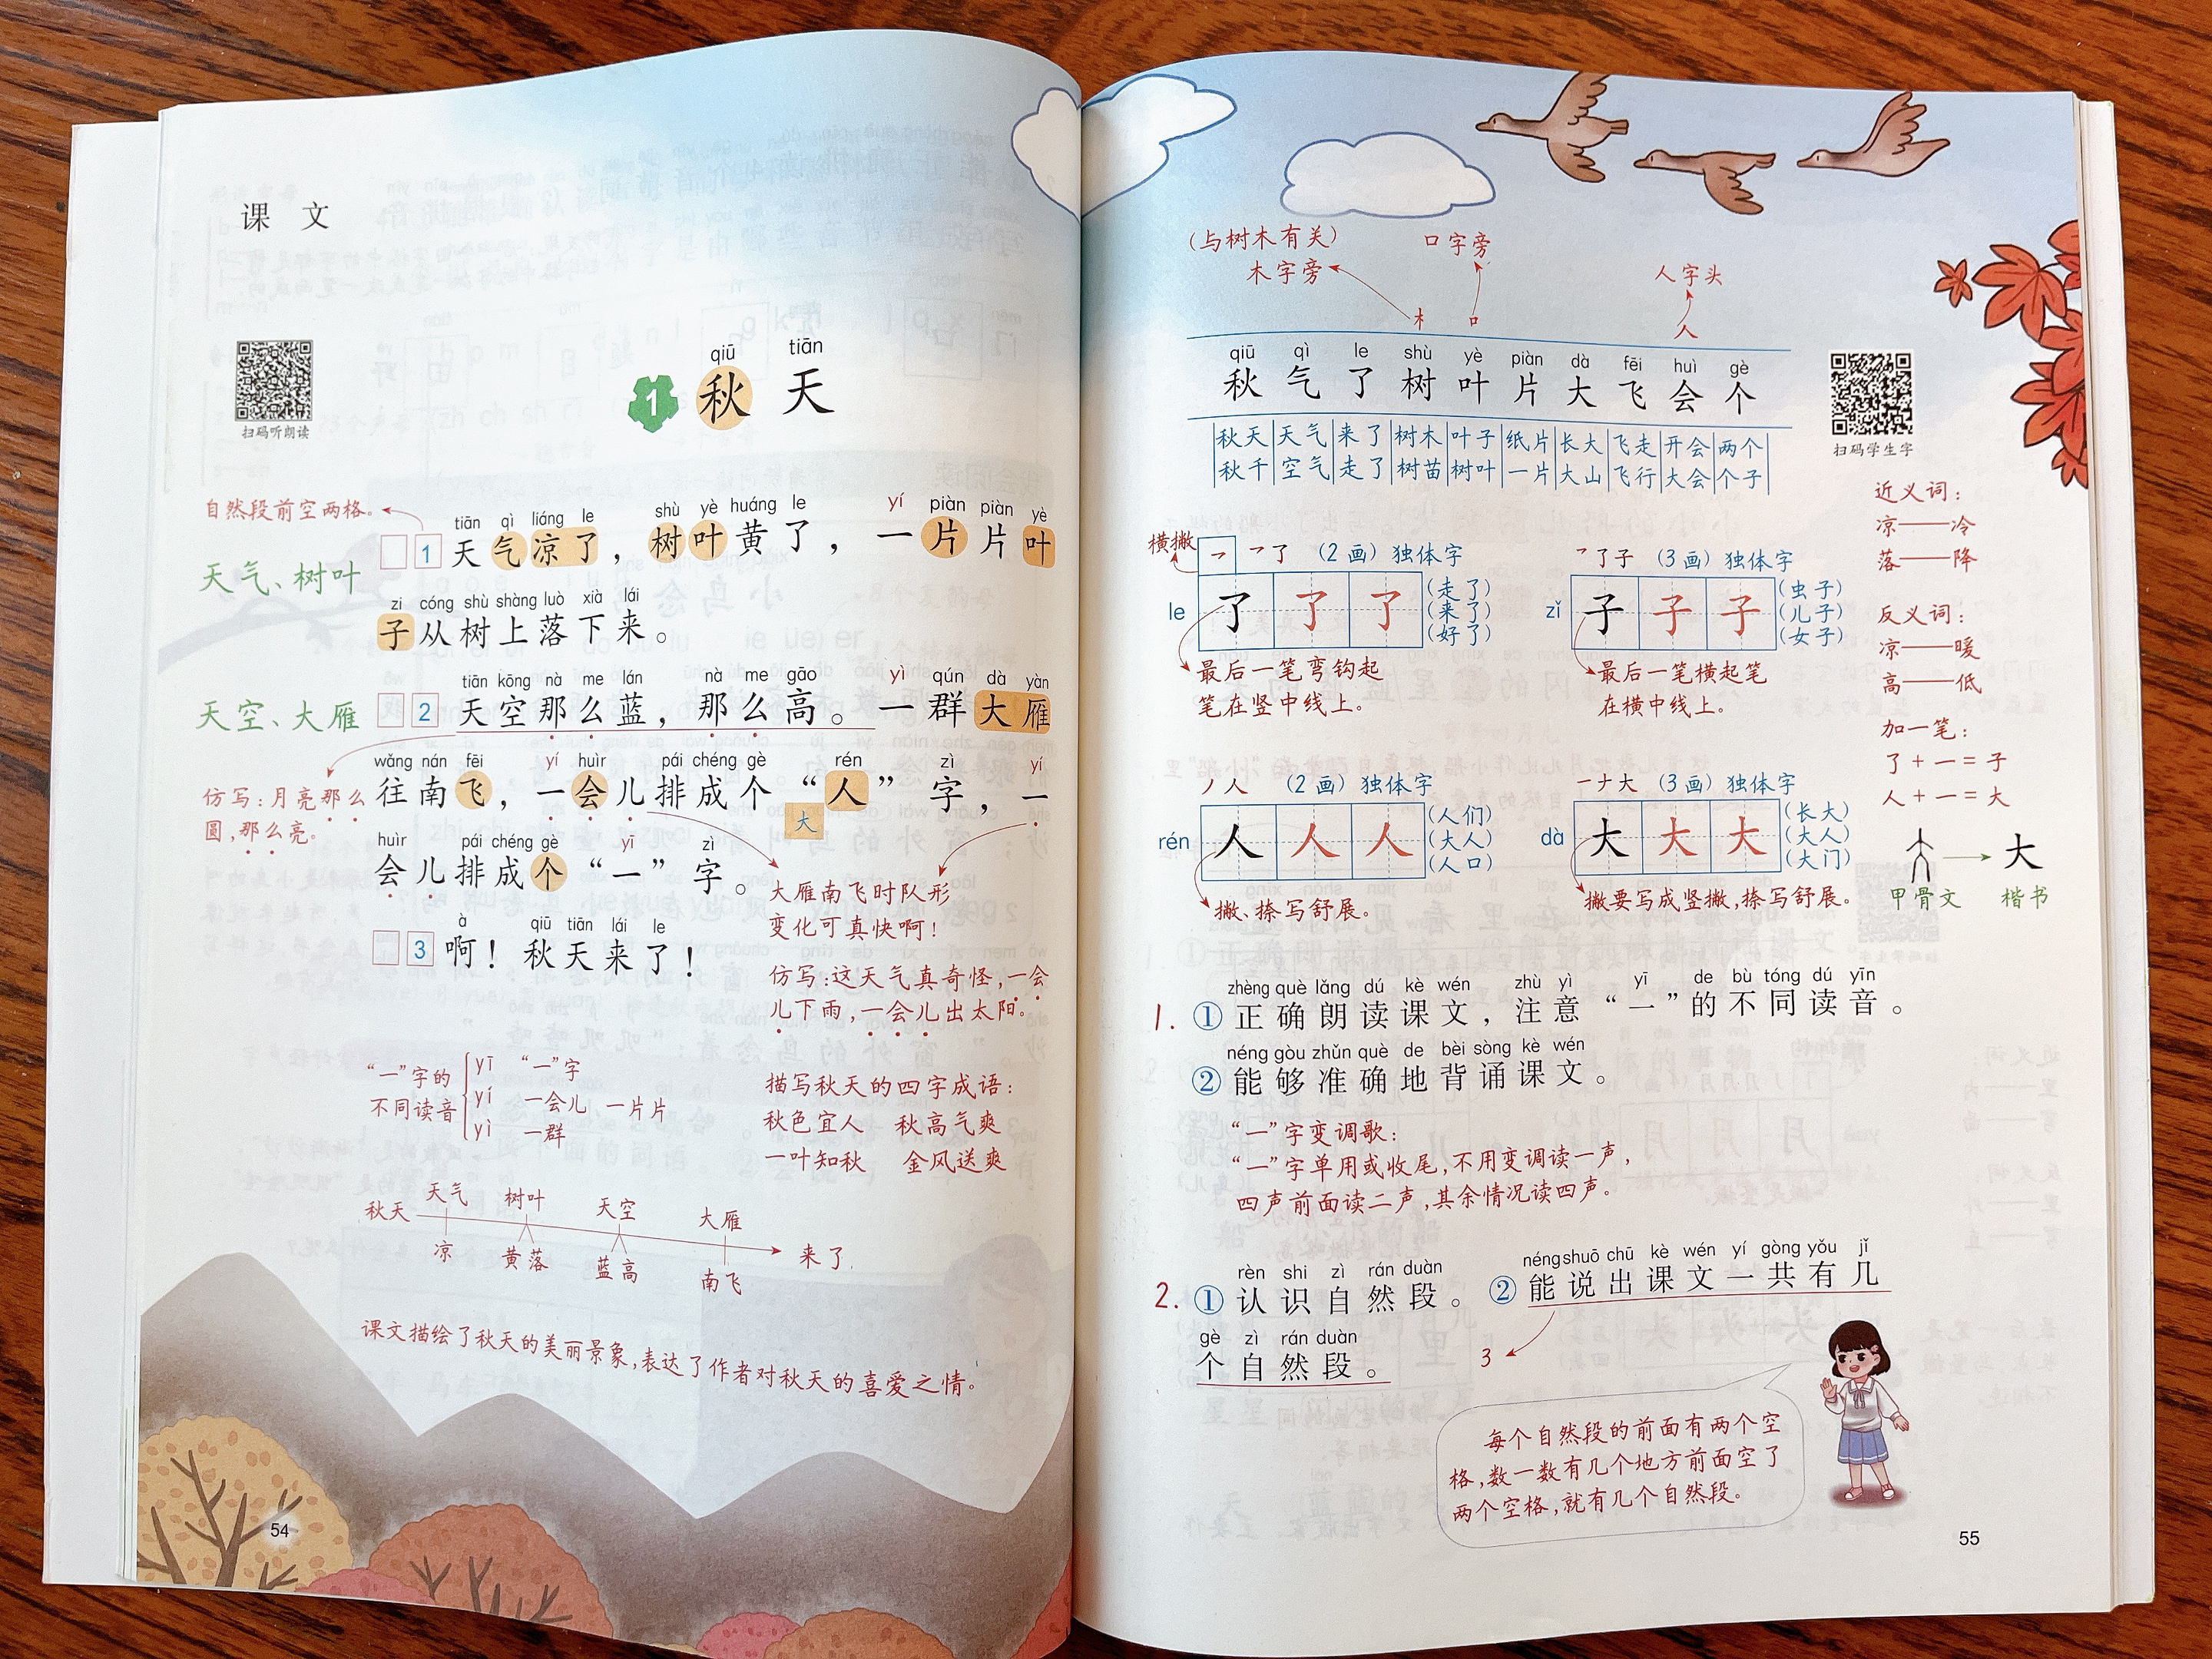 课 文
扫码听朗读
qiū tiān
1 秋 天
自然段前空两格。
tiān qì liáng le shù yè huáng le yí piàn piàn yè
1 天气凉了，树叶黄了，一片片叶
天气、树叶
zi cóng shù shàng luò xià lái
子从树上落下来。
tiān kōng nà me lán nà me gāo yì qún dà yàn
天空、大雁
2 天空那么蓝，那么高。一群大雁
wǎng nán fēi yí huìr pái chéng gè rén zì yí
往南飞，一会儿排成个“人”字，一
大
仿写：月亮那么
圆，那么亮。
huìr pái chéng gè yī zì
会儿排成个“一”字。
大雁南飞时队形
变化可真快啊！
à qiū tiān lái le
3 啊！秋天来了！
仿写：这天气真奇怪，一会
儿下雨，一会儿出太阳。
“一”字的
不同读音
yī “一”字
yí 一会儿 一片片
yì 一群
描写秋天的四字成语：
秋色宜人 秋高气爽
一叶知秋 金风送爽
秋天 天气 树叶 天空 大雁
凉 黄落 蓝高 南飞 来了
课文描绘了秋天的美丽景象，表达了作者对秋天的喜爱之情。
54
（与树木有关） 口字旁
木字旁 人字头
木 口 人
qiū qì le shù yè piàn dà fēi huì gè
秋 气 了 树 叶 片 大 飞 会 个
秋天 天气 来了 树木 叶子 纸片 长大 飞走 开会 两个
秋千 空气 走了 树苗 树叶 一片 大山 飞行 大会 个子
扫码学生字
横撇 ㇇ ㇇了 （2画）独体字
le 了 了 了 （走了）
（来了）
（好了）
最后一笔弯钩起
笔在竖中线上。
㇇了子 （3画）独体字
zǐ 子 子 子 （虫子）
（儿子）
（女子）
最后一笔横起笔
在横中线上。
丿人 （2画）独体字
rén 人 人 人 （人们）
（大人）
（人口）
撇、捺写舒展。
一ナ大 （3画）独体字
dà 大 大 大 （长大）
（大人）
（大门）
撇要写成竖撇，捺写舒展。
近义词：
凉——冷
落——降
反义词：
凉——暖
高——低
加一笔：
了＋一＝子
人＋一＝大
大
甲骨文 楷书
zhèng què lǎng dú kè wén zhù yì yī de bù tóng dú yīn
1. ①正确朗读课文，注意“一”的不同读音。
néng gòu zhǔn què de bèi sòng kè wén
②能够准确地背诵课文。
“一”字变调歌：
“一”字单用或收尾，不用变调读一声，
四声前面读二声，其余情况读四声。
rèn shi zì rán duàn néng shuō chū kè wén yí gòng yǒu jǐ
2. ①认识自然段。 ②能说出课文一共有几
gè zì rán duàn
个自然段。
3
每个自然段的前面有两个空
格，数一数有几个地方前面空了
两个空格，就有几个自然段。
55